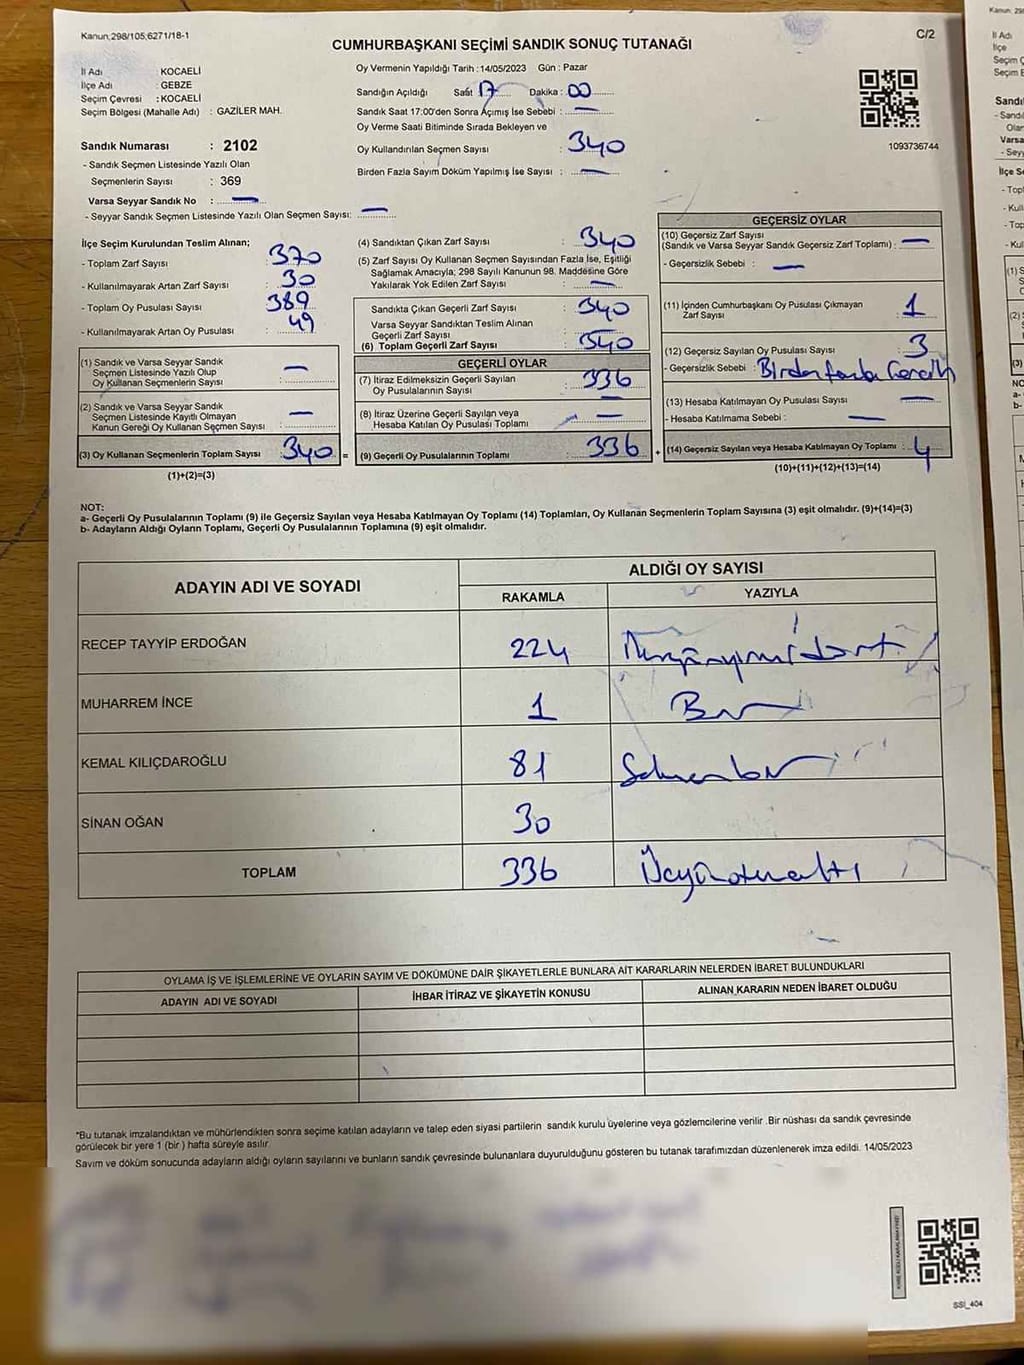 Kanun;298/105;6271/18-1
C/2
CUMHURBAŞKANI SEÇİMİ SANDIK SONUÇ TUTANAĞI
İl Adı : KOCAELİ
İlçe Adı : GEBZE
Seçim Çevresi : KOCAELİ
Seçim Bölgesi (Mahalle Adı) : GAZİLER MAH.
Sandık Numarası : 2102
- Sandık Seçmen Listesinde Yazılı Olan
Seçmenlerin Sayısı : 369
Varsa Seyyar Sandık No : —
- Seyyar Sandık Seçmen Listesinde Yazılı Olan Seçmen Sayısı: —
Oy Vermenin Yapıldığı Tarih : 14/05/2023 Gün : Pazar
Sandığın Açıldığı Saat : 17 Dakika : 00
Sandık Saat 17:00'den Sonra Açımış İse Sebebi : —
Oy Verme Saati Bitiminde Sırada Bekleyen ve
Oy Kullandırılan Seçmen Sayısı : 340
Birden Fazla Sayım Döküm Yapılmış İse Sayısı : —
1093736744
İlçe Seçim Kurulundan Teslim Alınan;
- Toplam Zarf Sayısı : 370
- Kullanılmayarak Artan Zarf Sayısı : 30
- Toplam Oy Pusulası Sayısı : 389
- Kullanılmayarak Artan Oy Pusulası : 49
(1) Sandık ve Varsa Seyyar Sandık
Seçmen Listesinde Yazılı Olup
Oy Kullanan Seçmenlerin Sayısı : —
(2) Sandık ve Varsa Seyyar Sandık
Seçmen Listesinde Kayıtlı Olmayan
Kanun Gereği Oy Kullanan Seçmen Sayısı : —
(3) Oy Kullanan Seçmenlerin Toplam Sayısı : 340 =
(1)+(2)=(3)
(4) Sandıktan Çıkan Zarf Sayısı : 340
(5) Zarf Sayısı Oy Kullanan Seçmen Sayısından Fazla İse, Eşitliği
Sağlamak Amacıyla; 298 Sayılı Kanunun 98. Maddesine Göre
Yakılarak Yok Edilen Zarf Sayısı : —
Sandıkta Çıkan Geçerli Zarf Sayısı : 340
Varsa Seyyar Sandıktan Teslim Alınan
Geçerli Zarf Sayısı
(6) Toplam Geçerli Zarf Sayısı : 340
GEÇERLİ OYLAR
(7) İtiraz Edilmeksizin Geçerli Sayılan
Oy Pusulalarının Sayısı : 336
(8) İtiraz Üzerine Geçerli Sayılan veya
Hesaba Katılan Oy Pusulası Toplamı : —
(9) Geçerli Oy Pusulalarının Toplamı : 336 +
GEÇERSİZ OYLAR
(10) Geçersiz Zarf Sayısı
(Sandık ve Varsa Seyyar Sandık Geçersiz Zarf Toplamı) : —
- Geçersizlik Sebebi : —
(11) İçinden Cumhurbaşkanı Oy Pusulası Çıkmayan
Zarf Sayısı : 1
(12) Geçersiz Sayılan Oy Pusulası Sayısı : 3
- Geçersizlik Sebebi : Birden fazla
(13) Hesaba Katılmayan Oy Pusulası Sayısı : —
- Hesaba Katılmama Sebebi : —
(14) Geçersiz Sayılan veya Hesaba Katılmayan Oy Toplamı : 4
(10)+(11)+(12)+(13)=(14)
NOT:
a- Geçerli Oy Pusulalarının Toplamı (9) ile Geçersiz Sayılan veya Hesaba Katılmayan Oy Toplamı (14) Toplamları, Oy Kullanan Seçmenlerin Toplam Sayısına (3) eşit olmalıdır. (9)+(14)=(3)
b- Adayların Aldığı Oyların Toplamı, Geçerli Oy Pusulalarının Toplamına (9) eşit olmalıdır.
ADAYIN ADI VE SOYADI
ALDIĞI OY SAYISI
RAKAMLA
YAZIYLA
RECEP TAYYİP ERDOĞAN 224 İkiyüzyirmidört
MUHARREM İNCE 1 Bir
KEMAL KILIÇDAROĞLU 81 Seksenbir
SİNAN OĞAN 30
TOPLAM 336 Üçyüzotuzaltı
OYLAMA İŞ VE İŞLEMLERİNE VE OYLARIN SAYIM VE DÖKÜMÜNE DAİR ŞİKAYETLERLE BUNLARA AİT KARARLARIN NELERDEN İBARET BULUNDUKLARI
ADAYIN ADI VE SOYADI
İHBAR İTİRAZ VE ŞİKAYETİN KONUSU
ALINAN KARARIN NEDEN İBARET OLDUĞU
*Bu tutanak imzalandıktan ve mühürlendikten sonra seçime katılan adayların ve talep eden siyasi partilerin sandık kurulu üyelerine veya gözlemcilerine verilir. Bir nüshası da sandık çevresinde
görülecek bir yere 1 (bir) hafta süreyle asılır.
Sayım ve döküm sonucunda adayların aldığı oyların sayılarını ve bunların sandık çevresinde bulunanlara duyurulduğunu gösteren bu tutanak tarafımızdan düzenlenerek imza edildi. 14/05/2023
SSİ_404